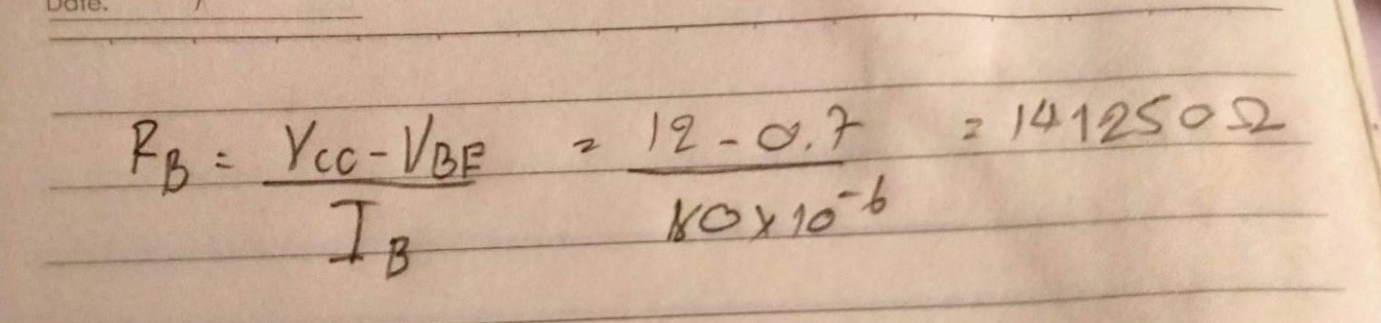 Date. /
R_B = V_CC - V_BE / I_B = 12 - 0.7 / 80 x 10^-6 = 141250 Ω